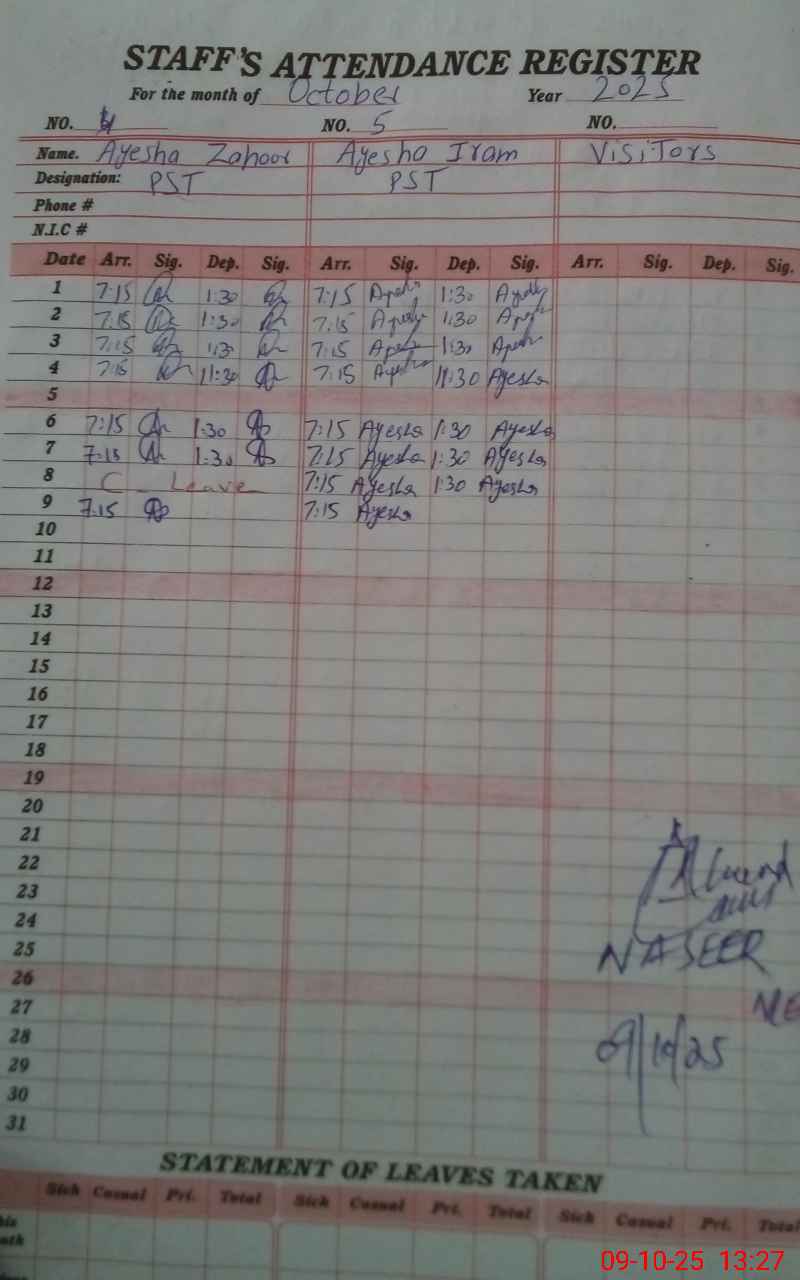 STAFF'S ATTENDANCE REGISTER
For the month of October Year 2025
NO. 4 NO. 5 NO.
Name. Ayesha Zahoor Ayesha Iram Visitors
Designation: PST PST
Phone #
N.I.C #
Date Arr. Sig. Dep. Sig. Arr. Sig. Dep. Sig. Arr. Sig. Dep. Sig.
1 7:15 1:30 7:15 Ayesha 1:30 Ayesha
2 7:15 1:30 7:15 Ayesha 1:30 Ayesha
3 7:15 1:30 7:15 Ayesha 1:30 Ayesha
4 7:15 11:30 7:15 Ayesha 11:30 Ayesha
5
6 7:15 1:30 7:15 Ayesha 1:30 Ayesha
7 7:15 1:30 7:15 Ayesha 1:30 Ayesha
8 C_Leave 7:15 Ayesha 1:30 Ayesha
9 7:15 7:15 Ayesha
10
11
12
13
14
15
16
17
18
19
20
21
22
23
24
25 NASEER
26
27
28 09/10/25
29
30
31
STATEMENT OF LEAVES TAKEN
Sick Casual Pri. Total Sick Casual Pri. Total Sick Casual Pri. Total
09-10-25 13:27